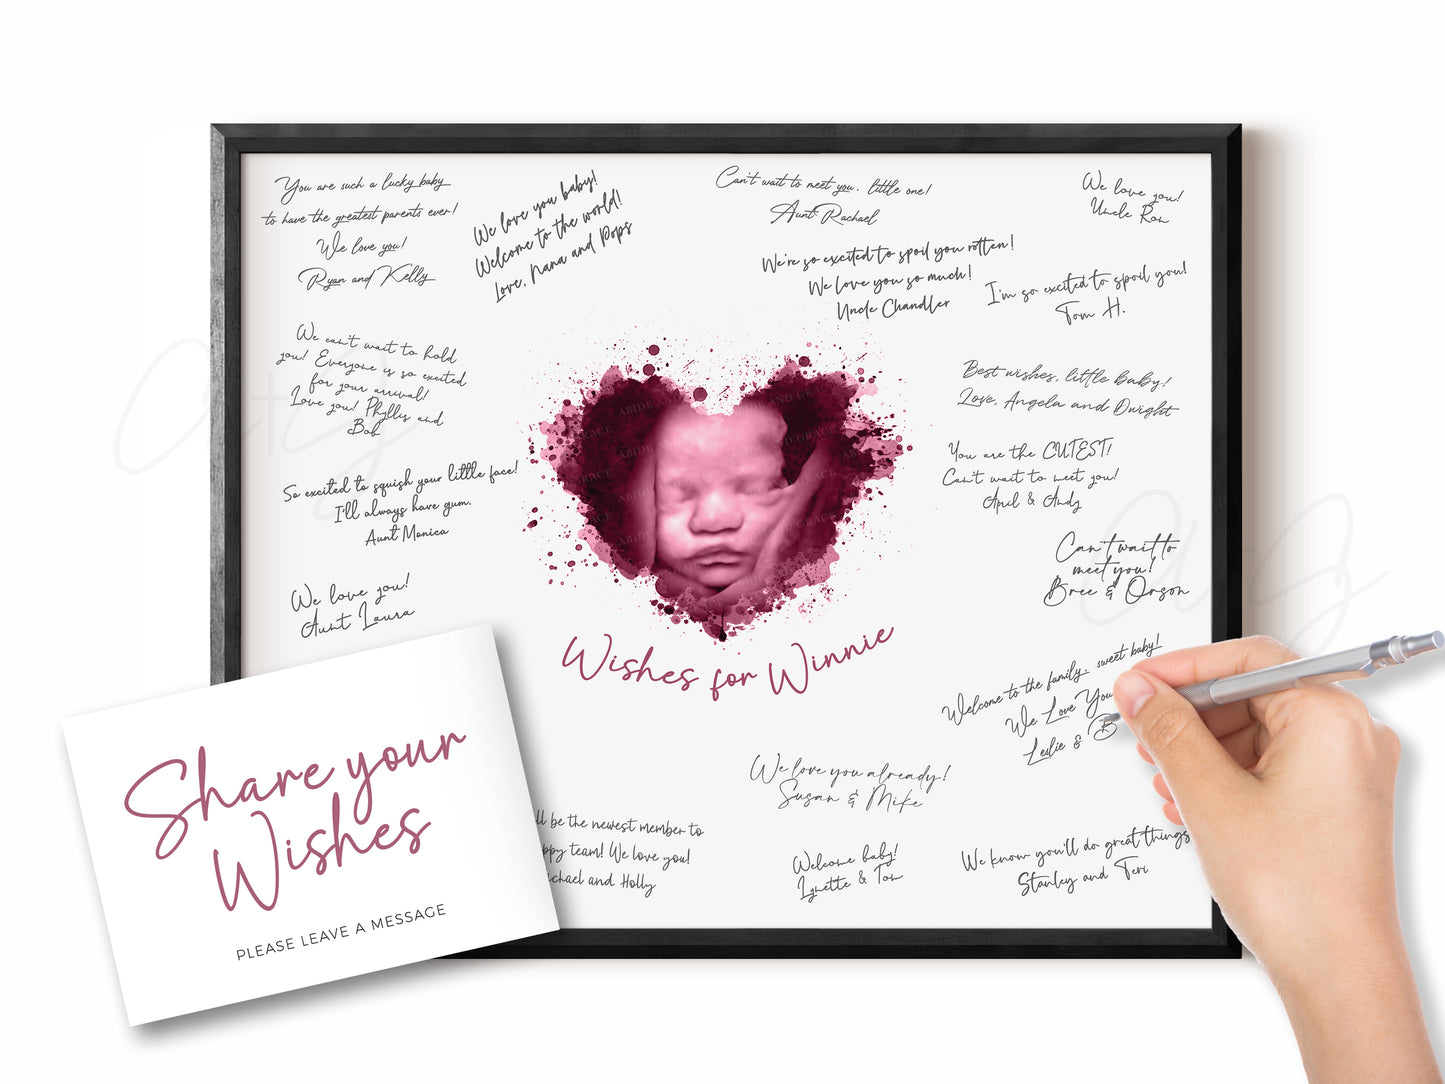 You are such a lucky baby
to have the greatest parents ever!
We love you!
Ryan and Kelly
We love you baby!
Welcome to the world!
Love, Nana and Pops
Can't wait to meet you, little one!
Aunt Rachael
We love you!
Uncle Ron
We're so excited to spoil you rotten!
We love you so much!
Uncle Chandler
I'm so excited to spoil you!
Tom H.
We can't wait to hold
you! Everyone is so excited
for your arrival!
Love you! Phyllis and
Bob
Best wishes, little baby!
Love, Angela and Dwight
You are the CUTEST!
Can't wait to meet you!
April & Andy
So excited to squish your little face!
I'll always have gum.
Aunt Monica
Can't wait to
meet you!
Bree & Orson
We love you!
Aunt Laura
ABIDE AND GRACE
Wishes for Winnie
Welcome to the family, sweet baby!
We Love You
Leslie & B
We love you already!
Susan & Mike
ll be the newest member to
ppy team! We love you!
ichael and Holly
Welcome baby!
Lynette & Tom
We know you'll do great things
Stanley and Teri
Share your
Wishes
PLEASE LEAVE A MESSAGE
A+G
A+G